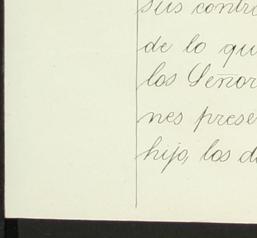 sus contr
de lo qu
los Señor
nes prese
hijo, los d